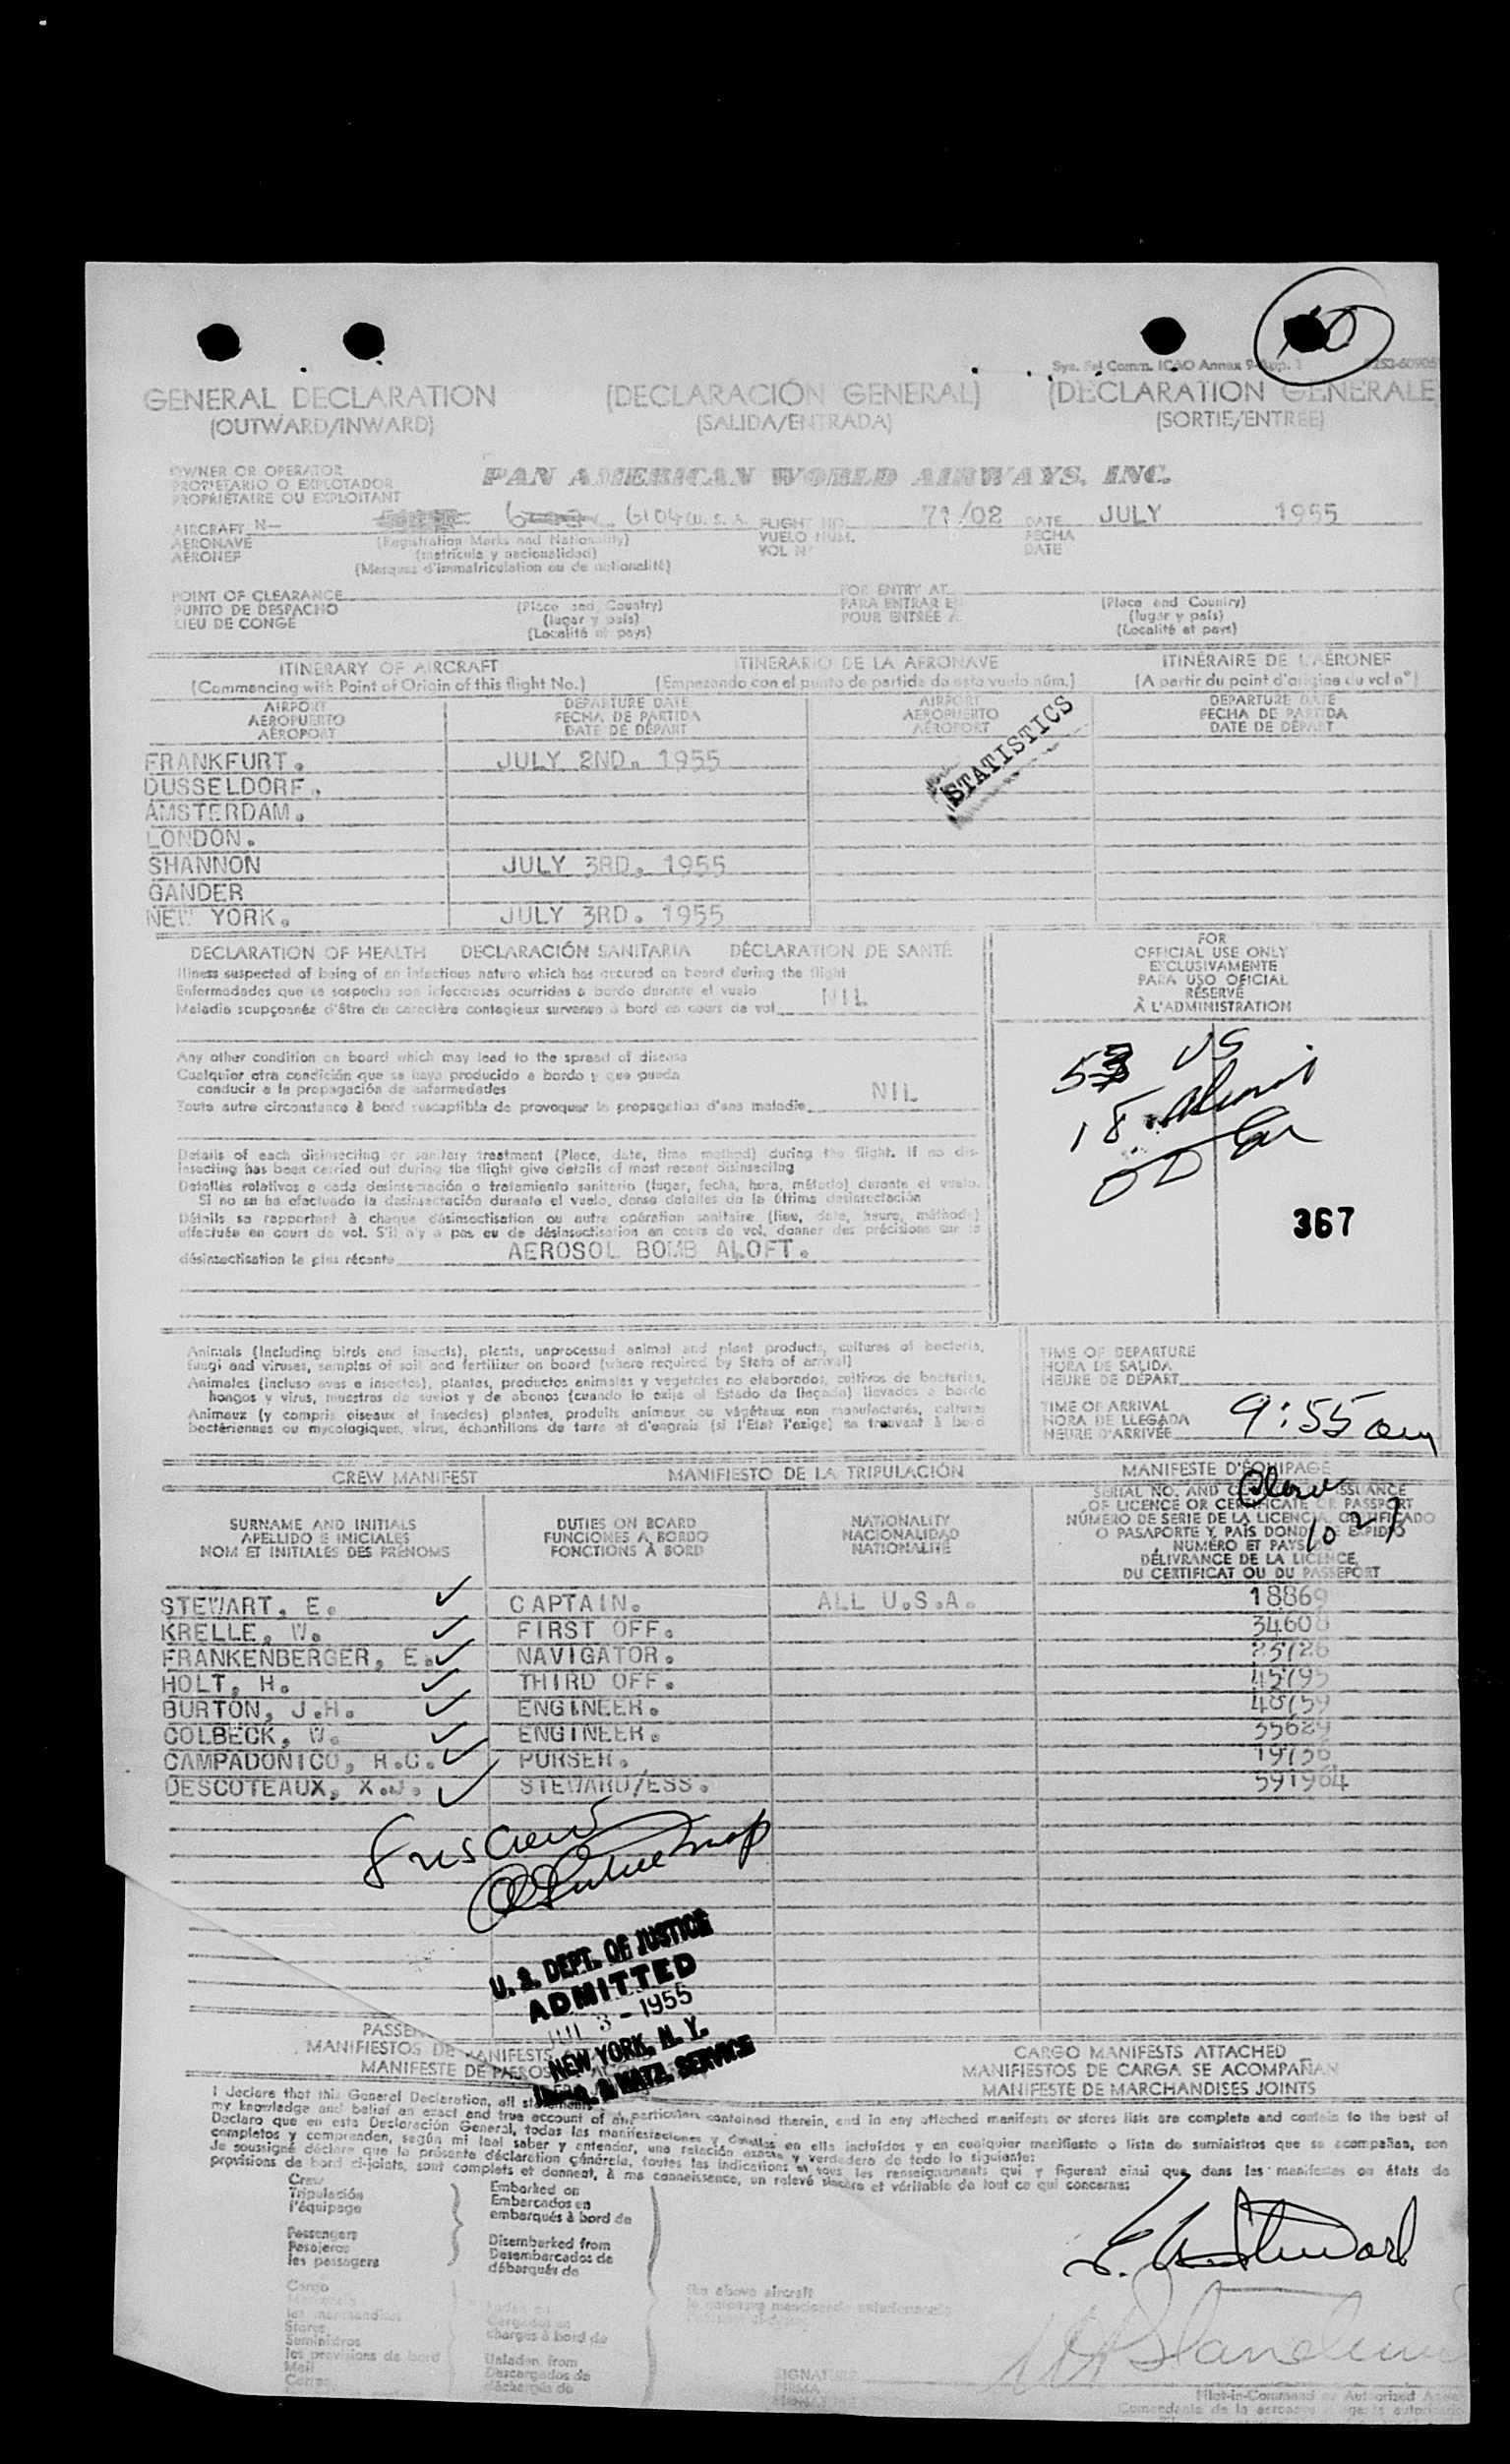 Sys. Fal Comm. ICAO Annex 9-App. 1
GENERAL DECLARATION (DECLARACIÓN GENERAL) (DÉCLARATION GÉNÉRALE
(OUTWARD/INWARD) (SALIDA/ENTRADA) (SORTIE/ENTRÉE)
OWNER OR OPERATOR
PROPIETARIO O EXPLOTADOR
PROPRIÉTAIRE OU EXPLOITANT
PAN AMERICAN WORLD AIRWAYS, INC.
AIRCRAFT N— 6104 U.S.A. FLIGHT NO. 71/02 DATE JULY 1955
AERONAVE (Registration Marks and Nationality) VUELO NUM. FECHA
AÉRONEF (matrícula y nacionalidad) VOL N° DATE
(Marques d'immatriculation ou de nationalité)
POINT OF CLEARANCE FOR ENTRY AT
PUNTO DE DESPACHO (Place and Country) PARA ENTRAR EN (Place and Country)
LIEU DE CONGÉ (lugar y país) POUR ENTRÉE A (lugar y país)
(Localité et pays) (Localité et pays)
ITINERARY OF AIRCRAFT ITINERARIO DE LA AERONAVE ITINÉRAIRE DE L'AÉRONEF
(Commencing with Point of Origin of this flight No.) (Empezando con el punto de partida de este vuelo núm.) (A partir du point d'origine du vol n°)
AIRPORT DEPARTURE DATE AIRPORT DEPARTURE DATE
AEROPUERTO FECHA DE PARTIDA AEROPUERTO FECHA DE PARTIDA
AÉROPORT DATE DE DÉPART AÉROPORT DATE DE DÉPART
STATISTICS
FRANKFURT. JULY 2ND. 1955
DUSSELDORF.
AMSTERDAM.
LONDON.
SHANNON JULY 3RD. 1955
GANDER
NEW YORK. JULY 3RD. 1955
DECLARATION OF HEALTH DECLARACIÓN SANITARIA DÉCLARATION DE SANTÉ
Illness suspected of being of an infectious nature which has occured on board during the flight
Enfermedades que se sospecha son infecciosas ocurridas a bordo durante el vuelo NIL
Maladie soupçonnée d'être de caractère contagieux survenue à bord en cours de vol
FOR
OFFICIAL USE ONLY
EXCLUSIVAMENTE
PARA USO OFICIAL
RÉSERVÉ
À L'ADMINISTRATION
53 US
18 aliens
367
Any other condition on board which may lead to the spread of disease
Cualquier otra condición que se haya producido a bordo y que pueda
conducir a la propagación de enfermedades NIL
Toute autre circonstance à bord susceptible de provoquer la propagation d'une maladie
Details of each disinsecting or sanitary treatment (Place, date, time method) during the flight. If no dis-
insecting has been carried out during the flight give details of most recent disinsecting
Detalles relativos a cada desinsectación o tratamiento sanitario (lugar, fecha, hora, método) durante el vuelo.
Si no se ha efectuado la desinsectación durante el vuelo, danse detalles de la última desinsectación
Détails se rapportant à chaque désinsectisation ou autre opération sanitaire (lieu, date, heure, méthode)
effectuée en cours de vol. S'il n'y a pas eu de désinsectisation en cours de vol, donner des précisions sur la
désinsectisation la plus récente AEROSOL BOMB ALOFT.
Animals (Including birds and insects), plants, unprocessed animal and plant products, cultures of bacteria,
fungi and viruses, samples of soil and fertilizer on board (where required by State of arrival)
Animales (incluso aves e insectos), plantas, productos animales y vegetales no elaborados, cultivos de bacterias,
hongos y virus, muestras de suelos y de abonos (cuando lo exija el Estado de llegada) llevados a bordo
Animaux (y compris oiseaux et insectes) plantes, produits animaux ou végétaux non manufacturés, cultures
bactériennes ou mycologiques, virus, échantillons de terre et d'engrais (si l'Etat l'exige) se trouvant à bord
TIME OF DEPARTURE
HORA DE SALIDA
HEURE DE DÉPART
TIME OF ARRIVAL
HORA DE LLEGADA 9:55 am
HEURE D'ARRIVÉE
CREW MANIFEST MANIFIESTO DE LA TRIPULACIÓN MANIFESTE D'ÉQUIPAGE
SURNAME AND INITIALS DUTIES ON BOARD NATIONALITY
APELLIDO E INICIALES FUNCIONES A BORDO NACIONALIDAD
NOM ET INITIALES DES PRÉNOMS FONCTIONS À BORD NATIONALITÉ
SERIAL NO. AND ISSUANCE
OF LICENCE OR CERTIFICATE OR PASSPORT
NÚMERO DE SERIE DE LA LICENCIA, CERTIFICADO
O PASAPORTE Y PAÍS DONDE SE EXPIDIÓ
NUMÉRO ET PAYS DE
DÉLIVRANCE DE LA LICENCE,
DU CERTIFICAT OU DU PASSEPORT
STEWART, E. CAPTAIN. ALL U.S.A. 18869
KRELLE, W. FIRST OFF. 34608
FRANKENBERGER, E. NAVIGATOR. 25726
HOLT, H. THIRD OFF. 45795
BURTON, J.H. ENGINEER. 48759
COLBECK, W. ENGINEER. 35629
CAMPADONICO, H.C. PURSER. 19756
DESCOTEAUX, X.J. STEWARD/ESS. 591964
8 US Crew
U. S. DEPT. OF JUSTICE
ADMITTED
JUL 3 - 1955
NEW YORK, N. Y.
IMMIG. & NATZ. SERVICE
CARGO MANIFESTS ATTACHED
MANIFIESTOS DE CARGA SE ACOMPAÑAN
MANIFESTE DE MARCHANDISES JOINTS
I declare that this General Declaration, all statements
my knowledge and belief an exact and true account of all particulars contained therein, and in any attached manifests or stores lists are complete and contain to the best of
Declaro que en esta Declaración General, todas las manifestaciones y detalles en ella incluidos y en cualquier manifiesto o lista de suministros que se acompañan, son
completos y comprenden, según mi leal saber y entender, una relación exacta y verdadera de todo lo siguiente:
Je soussigné déclare que la présente déclaration générale, toutes les indications et tous les renseignements qui y figurent ainsi que dans les manifestes ou états de
provisions de bord ci-joints, sont complets et donnent, à ma connaissance, un relevé sincère et véritable de tout ce qui concerne:
Crew Embarked on
Tripulación Embarcados en
l'équipage embarqués à bord de
Passengers Disembarked from
Pasajeros Desembarcados de
les passagers débarqués de
Cargo the above aircraft
les marchandises
Stores
Suministros charges à bord de
les provisions de bord
Mail Unladen from
Correo Descargados de
déchargés de
E. Stewart
SIGNATURE
FIRMA
Pilot-in-Command or Authorized Agent